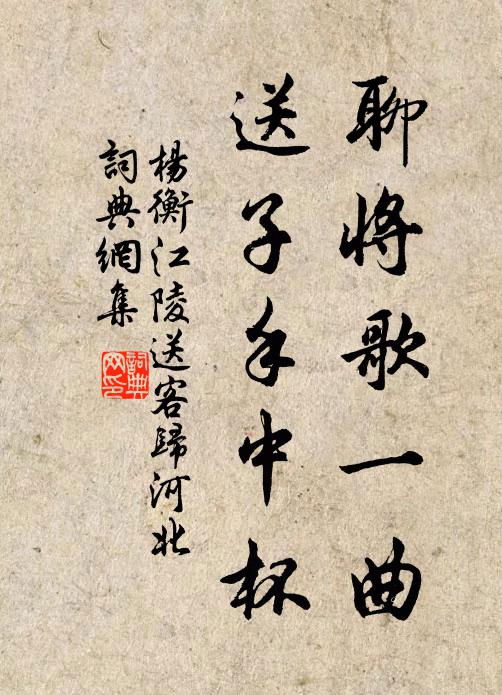 聊將歌一曲
送子手中杯
楊衡江陵送客歸河北
詞典網集
詞典網印